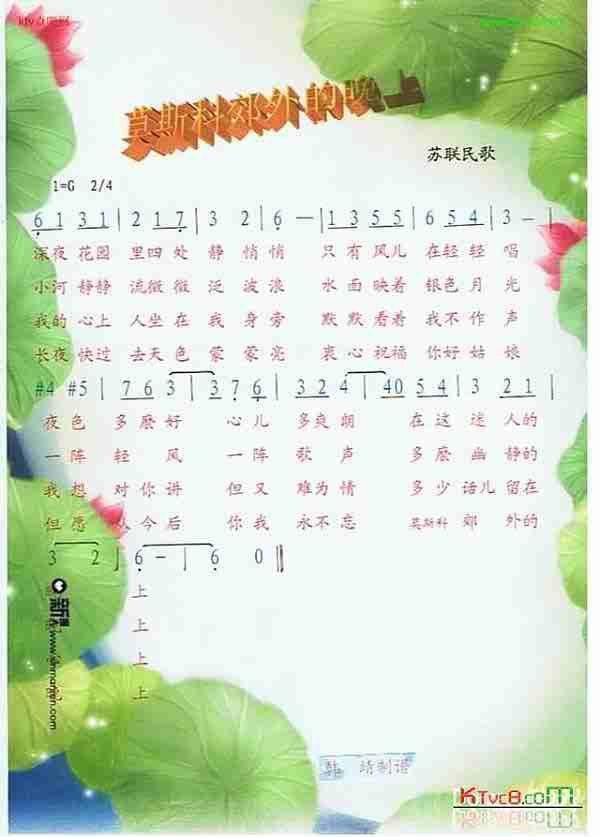 莫斯科郊外的晚上
苏联民歌
1=G 2/4
6 1 3 1 | 2 1 7 | 3 2 | 6 — | 1 3 5 5 | 6 5 4 | 3 — |
深夜 花园 里四 处 静 悄悄 只 有 风儿 在轻 轻 唱
小河 静静 流微 微 泛 波浪 水 面 映着 银色 月 光
我的 心上 人坐 在 我 身旁 默 默 看着 我不 作 声
长夜 快过 去天 色 蒙 蒙亮 衷 心 祝福 你好 姑 娘
#4 #5 | 7 6 3 | 3 7 6 | 3 2 4 | 4 0 5 4 | 3 2 1 |
夜 色 多 麽 好 心 儿 多爽 朗 在 这 迷 人的
一 阵 轻 风 一 阵 歌 声 多 麽 幽 静的
我 想 对 你 讲 但 又 难为 情 多 少 话儿 留在
但 愿 从 今 后 你 我 永不 忘 莫斯科 郊 外的
3 2 | 6 — | 6 0 ‖
上
上
上
上
www.sinmansin.com
韩 靖制谱
KTvc8.com